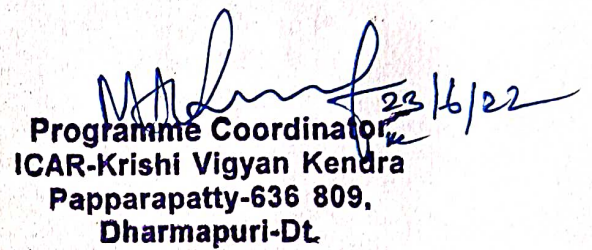 23/6/22
Programme Coordinator,
ICAR-Krishi Vigyan Kendra
Papparapatty-636 809,
Dharmapuri-Dt.